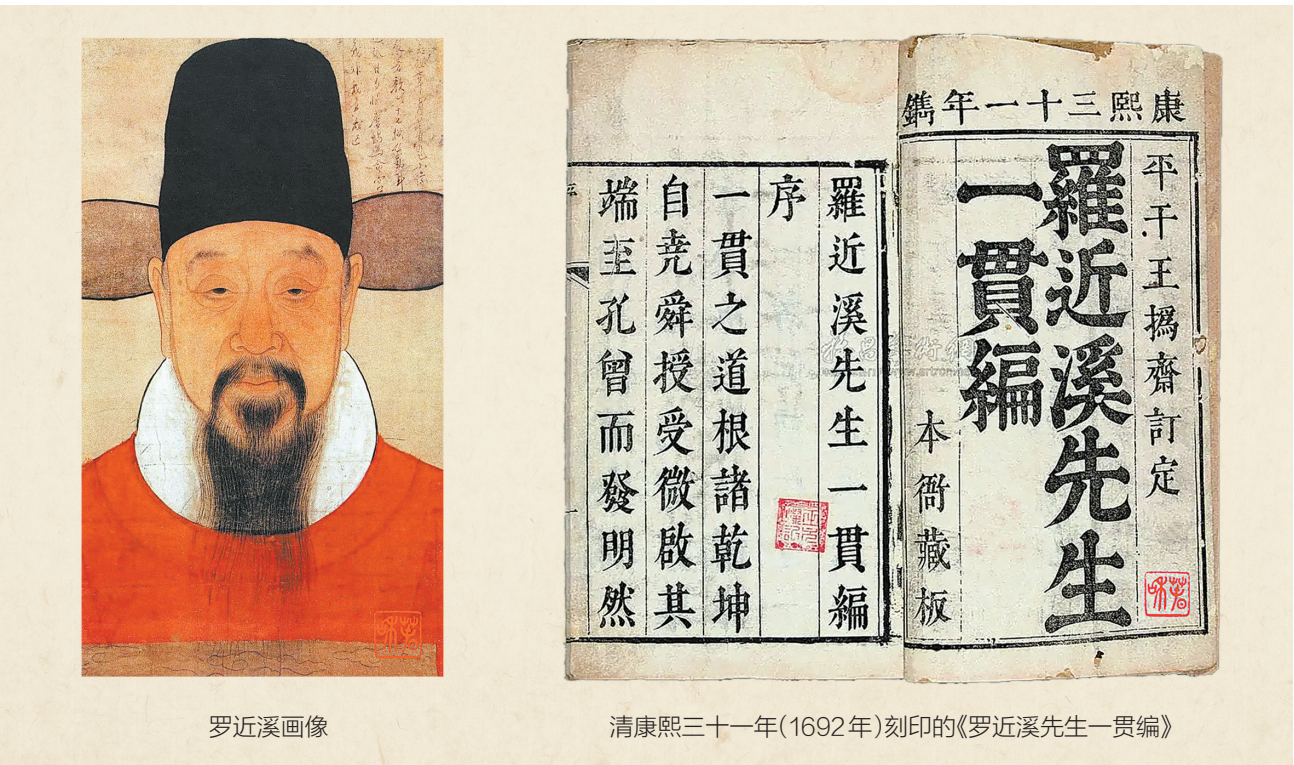 康熙三十一年鐫
平干王撝齋訂定
羅近溪先生
一貫編
本衙藏板
羅近溪先生一貫編
序
一貫之道根諸乾坤
自尭舜授受微啟其
端至孔曾而發明然
罗近溪画像
清康熙三十一年(1692年)刻印的《罗近溪先生一贯编》